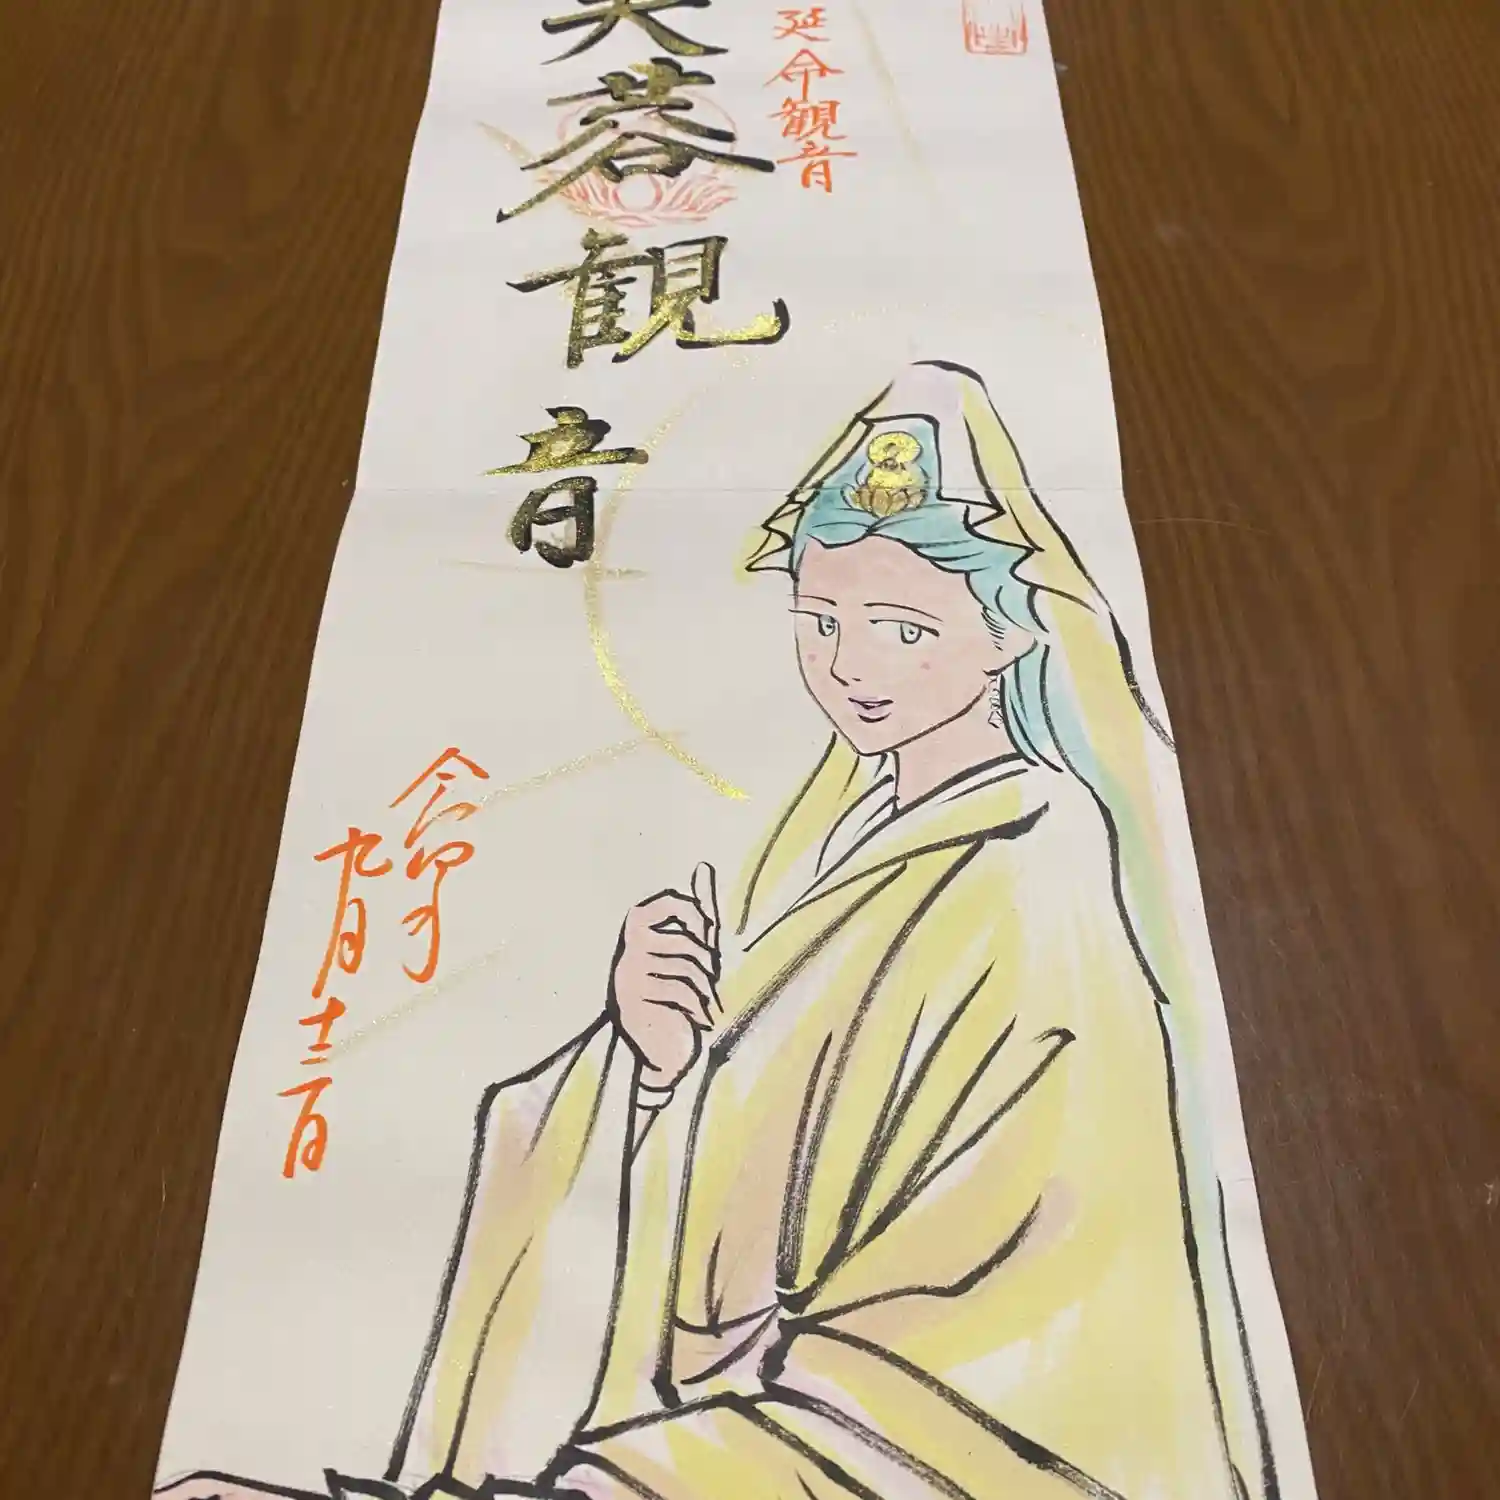 延命観音
芙蓉観音
令和四年
九月十二日